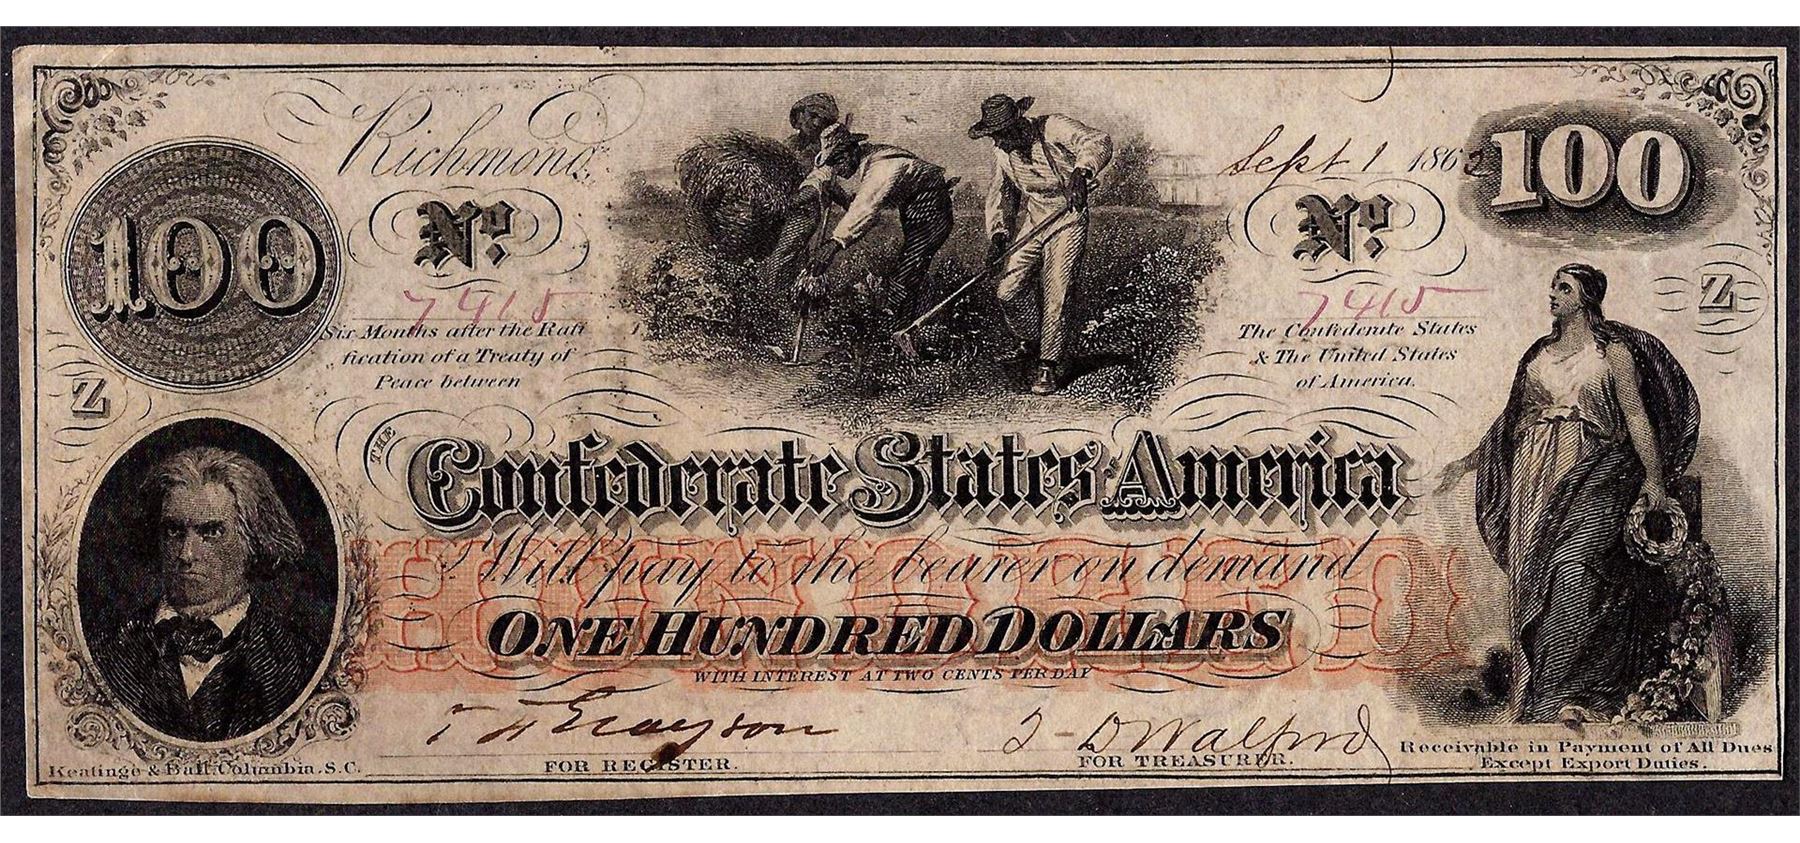 Richmond,
Sept 1 1862
100
100
No.
No.
7415
7415
Six Months after the Rati
fication of a Treaty of
Peace between
The Confederate States
& The United States
of America.
Z
Z
THE
Confederate States America
Will pay to the bearer on demand
HUNDRED
ONE HUNDRED DOLLARS
WITH INTEREST AT TWO CENTS PER DAY
T H Grayson
J D Walford
FOR REGISTER.
FOR TREASURER.
Receivable in Payment of All Dues
Except Export Duties.
Keatinge & Ball, Columbia, S.C.